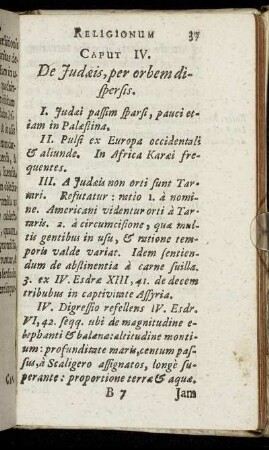 RELIGIONUM 37
CAPUT IV.
De Judæis, per orbem di-
spersis.
I. Judæi passim sparsi, pauci et-
iam in Palæstina.
II. Pulsi ex Europa occidentali
& aliunde. In Africa Karæi fre-
quentes.
III. A Judæis non orti sunt Tar-
tari. Refutatur: ratio 1. à nomi-
ne. Americani videntur orti à Tar-
taris. 2. à circumcisione, qua mul-
tis gentibus in usu, & ratione tem-
poris valde variat. Idem sentien-
dum de abstinentia à carne suilla.
3. ex IV. Esdræ XIII, 41. de decem
tribubus in captivitate Assyria.
IV. Digressio refellens IV. Esdr.
VI, 42. seqq. ubi de magnitudine e-
lephanti & balænæ: altitudine monti-
um: profunditate maris, centum pas-
sus, à Scaligero assignatos, longè su-
perante: proportione terræ & aquæ.
B 7 Jam